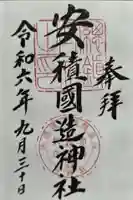 奉拝
安積國造神社
令和六年九月三十日